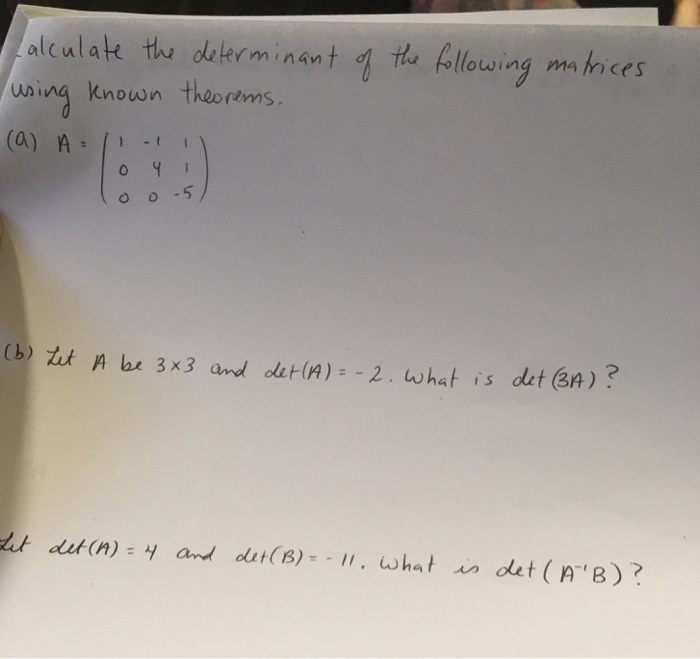 alculate the determinant of the following matrices
using known theorems.
(a) A = ( 1 -1 1
0 4 1
0 0 -5 )
(b) Let A be 3×3 and det(A) = -2. What is det(3A)?
Let det(A) = 4 and det(B) = -11. What is det(A⁻¹B)?